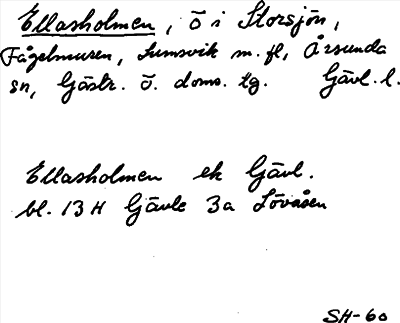 Ellasholmen, ö i Storsjön,
Fågelmuren, Lumsvik m. fl, Årsunda
sn, Gästr. ö. doms. tg. Gävl. l.
Ellasholmen ek Gävl.
bl. 13 H Gävle 3a Lövåsen
SH-60